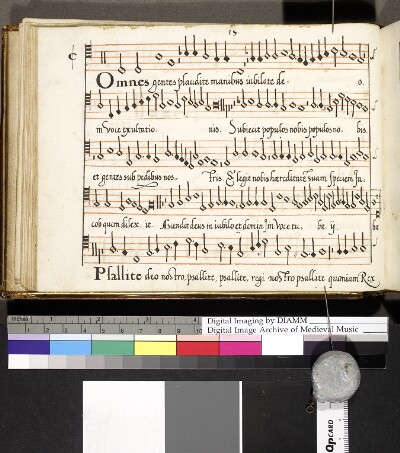 15.
Omnes gentes plaudite manibus iubilate de o.
in voce exultatio nis. Subiecit populos nobis populos no bis
et gentes sub pedibus nos tris Elegit nobis hæreditatē suam speciem Ja
cob quem dilex it. Ascendit deus in iubilo et domin' in voce tu be ij. be
Psallite deo nostro, psallite, psallite, regi nostro psallite quoniam Rex
inches 1 2 3 4
1 2 3 4 5 6 7 8 9 10
Digital Imaging by DIAMM
Digital Image Archive of Medieval Music
QPCARD